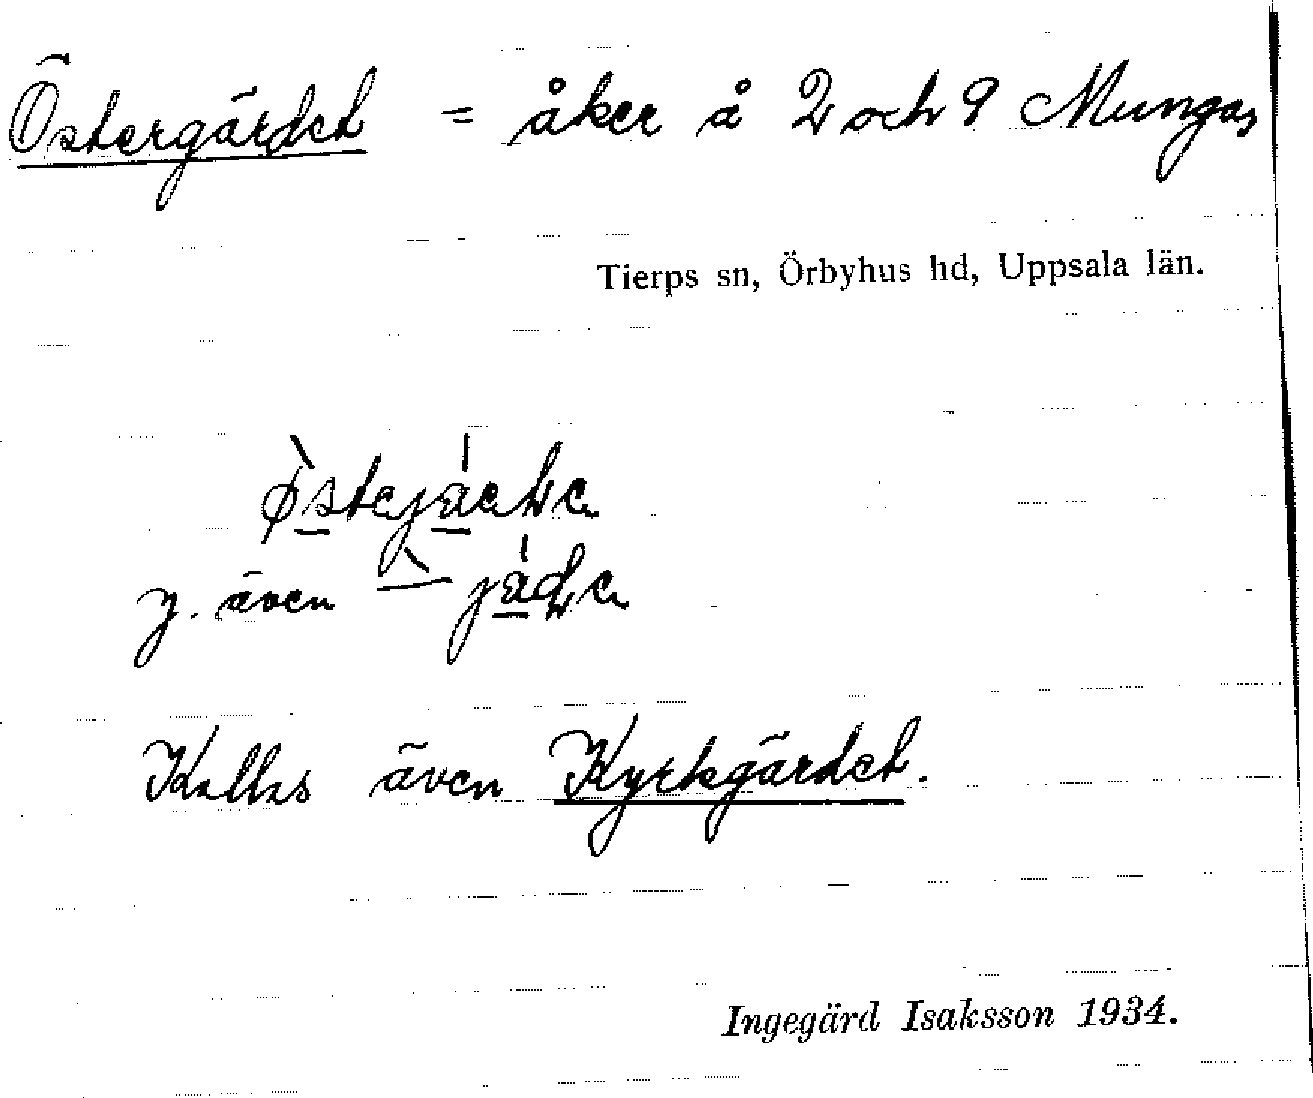 Östergärdet = åker å 2 och 9 Munga,
Tierps sn, Örbyhus hd, Uppsala län.
y. även
Kallas även Kyrkgärdet.
Ingegärd Isaksson 1934.